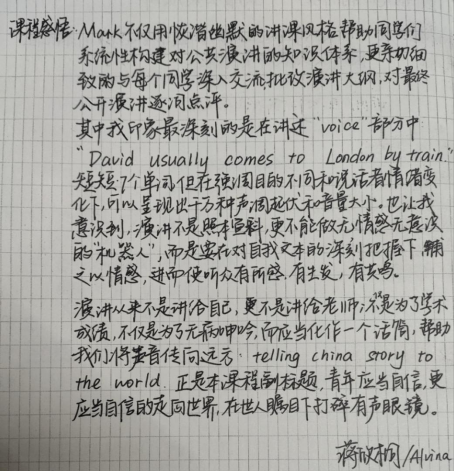 课程感悟: Mark不仅用诙谐幽默的讲课风格帮助同学们
系统性构建对公共演讲的知识体系,更亲切细
致的与每个同学深入交流批改演讲大纲,对最终
公开演讲逐词点评。
其中我印象最深刻的是在讲述"voice"部分中
"David usually comes to London by train."
短短7个单词但在强调目的不同和说话者情绪变
化下,可以呈现出千万种声调起伏和音量大小。也让我
意识到,演讲不是照本宣科,更不能做无情感无意识
的"机器人",而是要在对自我文本的深刻把握下,辅
之以情感,进而使听众有所感,有生发,有共鸣。
演讲从来不是讲给自己,更不是讲给老师;不是为了学术
成绩,不仅是为了无病呻吟,而应当化作一个话筒,帮助
我们将声音传向远方: telling china story to
the world. 正是本课程副标题,青年应当自信,更
应当自信的走向世界,在世人瞩目下打碎有声眼镜。
蒋欣桐/Alvina